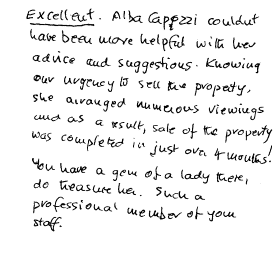 Excellent. Alba Capozzi couldn't
have been more helpful with her
advice and suggestions. Knowing
our urgency to sell the property,
she arranged numerous viewings
and as a result, sale of the property
was completed in just over 4 months!
You have a gem of a lady there,
do treasure her. Such a
professional member of your
staff.